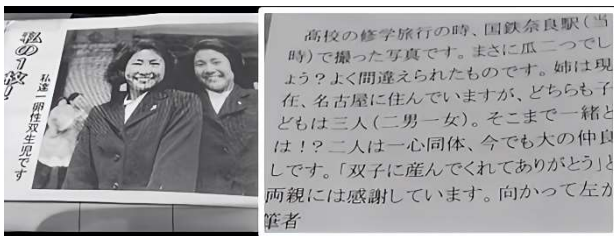 私の1枚!
私達一卵性双生児です
高校の修学旅行の時、国鉄奈良駅(当
時)で撮った写真です。まさに瓜二つでし
ょう?よく間違えられたものです。姉は現
在、名古屋に住んでいますが、どちらも子
どもは三人(二男一女)。そこまで一緒と
は!?二人は一心同体、今でも大の仲良
しです。「双子に産んでくれてありがとう」と
両親には感謝しています。向かって左が
筆者